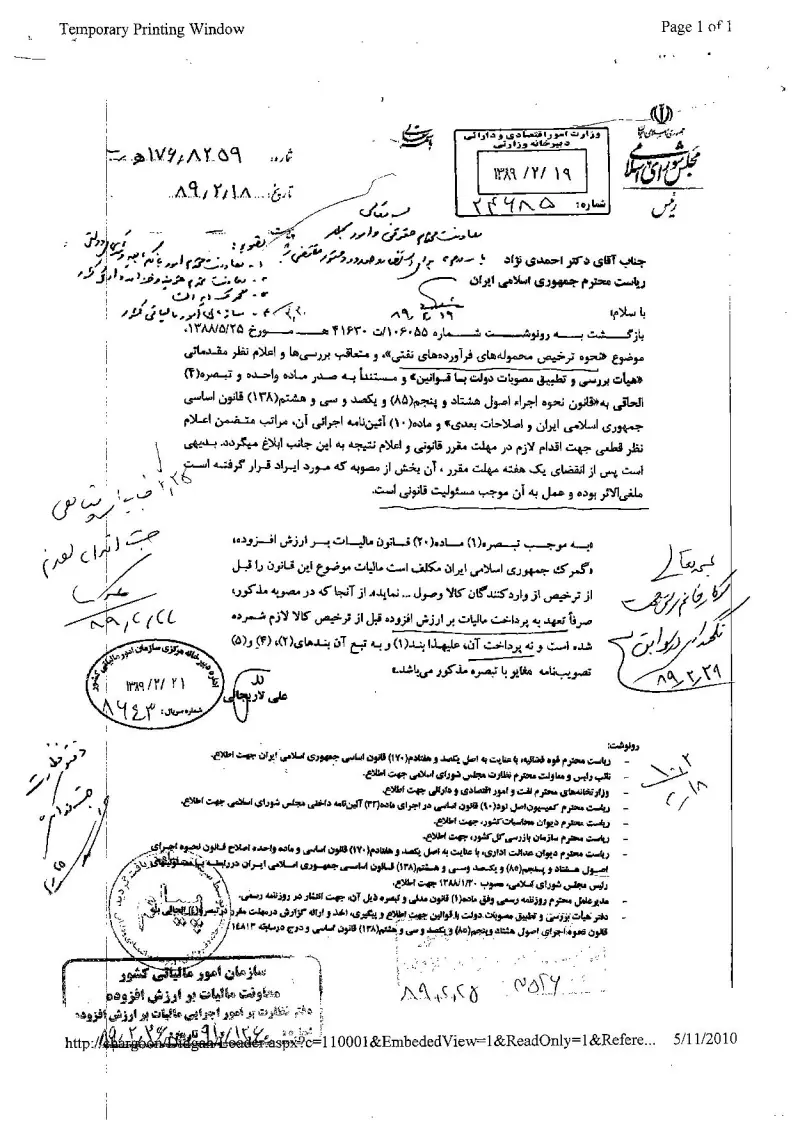 Temporary Printing Window
Page 1 of 1
جمهوری اسلامی ایران
مجلس شورای اسلامی
رئیس
وزارت امور اقتصادی و دارائی
دبیرخانه وزارتی
۱۳۸۹/۲/۱۹
شماره: ۲۴۶۸۵
شماره: ۱۷۶۰۸۲۵۹
تاریخ: ۸۹/۲/۱۸
جناب آقای دکتر احمدی نژاد
ریاست محترم جمهوری اسلامی ایران
با سلام؛
بازگشت به رونوشت شماره ۱۰۶۰۵۵/ت ۴۱۶۳۰هـ مورخ ۱۳۸۸/۵/۲۵،
موضوع «نحوه ترخیص محموله‌های فرآورده‌های نفتی»، و متعاقب بررسی‌ها و اعلام نظر مقدماتی
«هیأت بررسی و تطبیق مصوبات دولت با قوانین» و مستنداً به صدر ماده واحده و تبصره(۴)
الحاقی به«قانون نحوه اجراء اصول هشتاد و پنجم(۸۵) و یکصد و سی و هشتم(۱۳۸) قانون اساسی
جمهوری اسلامی ایران و اصلاحات بعدی» و ماده(۱۰) آئین‌نامه اجرائی آن، مراتب متضمن اعلام
نظر قطعی جهت اقدام لازم در مهلت مقرر قانونی و اعلام نتیجه به این جانب ابلاغ میگردد. بدیهی
است پس از انقضای یک هفته مهلت مقرر ، آن بخش از مصوبه که مورد ایراد قرار گرفته است
ملغی‌الاثر بوده و عمل به آن موجب مسئولیت قانونی است.
«به موجب تبصره(۱) ماده(۲۰) قانون مالیات بر ارزش افزوده،
«گمرک جمهوری اسلامی ایران مکلف است مالیات موضوع این قانون را قبل
از ترخیص از واردکنندگان کالا وصول ... نماید». از آنجا که در مصوبه مذکور،
صرفاً تعهد به پرداخت مالیات بر ارزش افزوده قبل از ترخیص کالا لازم شمرده
شده است و نه پرداخت آن، علیهذا بند(۱) و به تبع آن بندهای(۲)، (۴) و(۵)
تصویب‌نامه مغایر با تبصره مذکور می‌باشد.»
علی لاریجانی
اداره دبیرخانه مرکزی سازمان امور مالیاتی کشور
۱۳۸۹/۲/۲۱
شماره سریال: ۸۶۴۳
۸۹/۲/۲۲
۸۹/۲/۲۹
رونوشت:
- ریاست محترم قوه قضائیه، با عنایت به اصل یکصد و هفتادم(۱۷۰) قانون اساسی جمهوری اسلامی ایران جهت اطلاع.
- نائب رئیس و معاونت محترم نظارت مجلس شورای اسلامی جهت اطلاع.
- وزارتخانه‌های محترم نفت و امور اقتصادی و دارائی جهت اطلاع.
- ریاست محترم کمیسیون اصل نود(۹۰) قانون اساسی در اجرای ماده(۳۳) آئین‌نامه داخلی مجلس شورای اسلامی جهت اطلاع.
- ریاست محترم دیوان محاسبات کشور، جهت اطلاع.
- ریاست محترم سازمان بازرسی کل کشور، جهت اطلاع.
- ریاست محترم دیوان عدالت اداری، با عنایت به اصل یکصد و هفتادم(۱۷۰) قانون اساسی و ماده واحده اصلاح قانون نحوه اجرای
اصول هشتاد و پنجم(۸۵) و یکصد وسی و هشتم(۱۳۸) قانون اساسی جمهوری اسلامی ایران دررابطه با مسئولیتهای
رئیس مجلس شورای اسلامی، مصوب ۱۳۸۸/۱/۳۰ جهت اطلاع.
- مدیرعامل محترم روزنامه رسمی وفق ماده(۱) قانون مدنی و تبصره ذیل آن، جهت انتشار در روزنامه رسمی.
- دفتر هیأت بررسی و تطبیق مصوبات دولت با قوانین جهت اطلاع و پیگیری، اخذ و ارائه گزارش درمهلت مقرر در تبصره(۴) الحاقی به
قانون نحوه اجرای اصول هشتاد وپنجم(۸۵) و یکصد و سی و هشتم(۱۳۸) قانون اساسی و درج درسابقه ۱۴۸۱۳
سازمان امور مالیاتی کشور
معاونت مالیات بر ارزش افزوده
دفتر نظارت بر امور اجرایی مالیات بر ارزش افزوده
۸۹/۲/۲۵
http://chargoon/Didgah/Loader.aspx?c=110001&EmbededView=1&ReadOnly=1&Refere... 5/11/2010